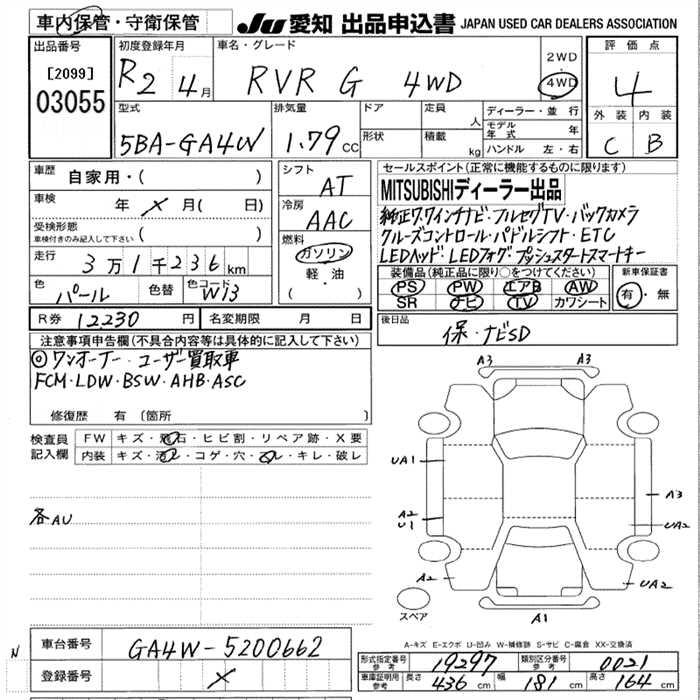 車内保管・守衛保管
JU 愛知 出品申込書 JAPAN USED CAR DEALERS ASSOCIATION
出品番号
[2099]
03055
初度登録年月
R2 4月
車名・グレード
RVR G 4WD
2WD
・
4WD
評価点
4
外装 内装
C B
型式
5BA-GA4W
排気量
1.79cc
ドア
形状
定員
人
積載
kg
ディーラー・並行
モデル年式 年
ハンドル 左・右
車歴 自家用・( )
車検 年 × 月( 日)
受検形態
車検付きのみ記入して下さい ( )
走行
3万1千236km
色 パール 色替 色コード W13
シフト AT
冷房 AAC
燃料
ガソリン
軽・油
( )
セールスポイント(正常に機能するものに限ります)
MITSUBISHIディーラー出品
純正7.7インチナビ・フルセグTV・バックカメラ
クルーズコントロール・パドルシフト・ETC
LEDヘッド・LEDフォグ・プッシュスタートスマートキー
装備品(純正品に限り○をつけてください)
PS PW エアB AW
SR ナビ TV カワシート
新車保証書
有・無
R券 12230円 名変期限 月 日
後日品
保・ナビSD
注意事項申告欄(不具合内容等は具体的に記入して下さい)
◎ワンオーナー・ユーザー買取車
FCM・LDW・BSW・AHB・ASC
修復歴 有〔箇所 〕
検査員記入欄
FW キズ・飛石・ヒビ割・リペア跡・X要
内装 キズ・汚レ・コゲ・穴・スレ・キレ・破レ
各AU
A3 A3
UA1
A3
A2
U1
UA2
A2
UA2
スペア
A1
A-キズ E-エクボ U-凹み W-補修跡 S-サビ C-腐食 XX-交換済
N
車台番号 GA4W-5200662
登録番号 ×
形式指定番号 参考 19297 類別区分番号 参考 0021
車庫証明用 参考 長さ 436cm 幅 181cm 高さ 164cm